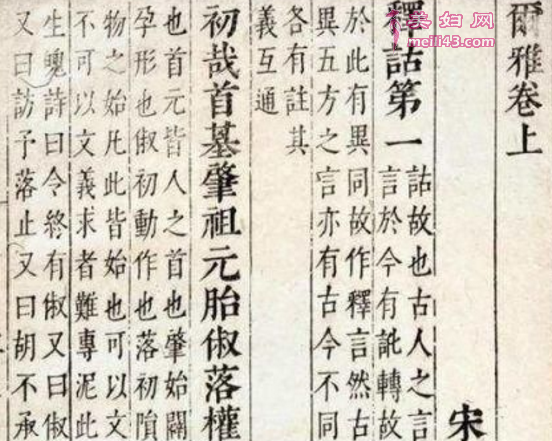 美妇网
meili43.com
爾雅卷上
宋
釋詁第一
詁故也古人之言
言於今有訛轉故
於此有異同故作釋言然古
異五方之言亦有古今不同
各有註其
義互通
初哉首基肇祖元胎俶落權
也首元皆人之首也肇始闢
孕形也俶初動作也落初隕
物之始凡此皆始也可以文
不可以文義求者難專泥此
生魄詩曰令終有俶又曰俶
又曰訪予落止又曰胡不承